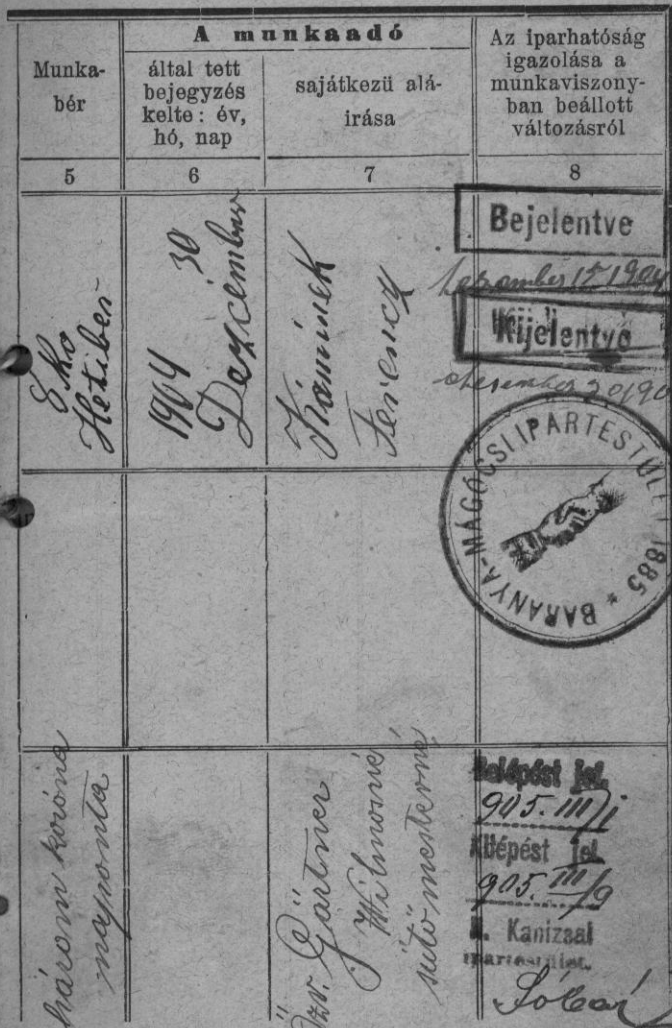 Munka-
bér
A munkaadó
által tett
bejegyzés
kelte: év,
hó, nap
sajátkezü alá-
irása
Az iparhatóság
igazolása a
munkaviszony-
ban beállott
változásról
5
6
7
8
8 ko
Hetiben
1904 30
Dezcember
Kaminek
Ferencz
Bejelentve
1904
Kijelentve
BARANYA-MÁGOCSI IPARTESTÜLET 1885 *
három korona
naponta
özv. Gärtner
Vilmosné
sütőmesterné
Belépést jel.
905. III/1
Kilépést jel.
905. III/9
N. Kanizsai
ipartestület.